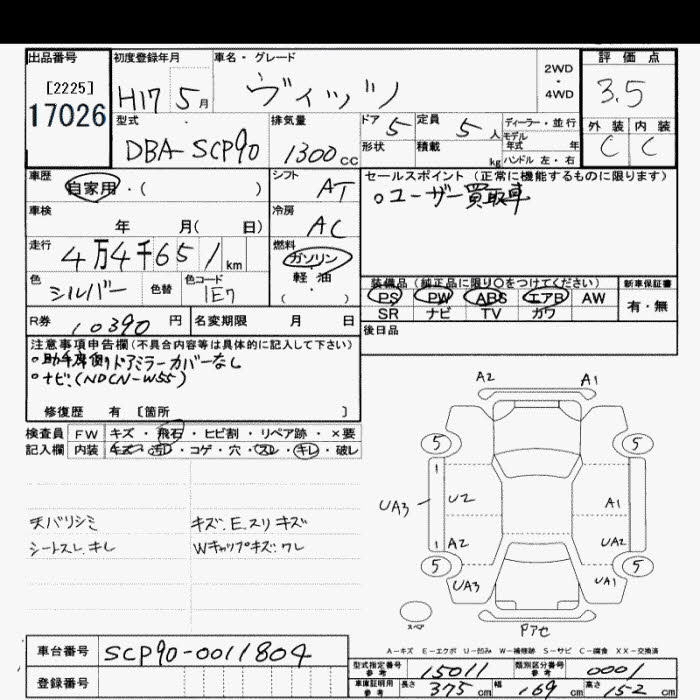 出品番号
[2225]
17026
初度登録年月
H17 5月
車名・グレード
ヴィッツ
2WD
・
4WD
評価点
3.5
外装 内装
C C
型式
DBA-SCP90
排気量
1300cc
ドア 5
定員 5人
ディーラー・並行
モデル
年式 年
形状
積載 kg
ハンドル 左・右
車歴
自家用・( )
シフト
AT
セールスポイント(正常に機能するものに限ります)
○ユーザー買取車
車検
年 月( 日)
冷房
AC
走行
4万4千651km
燃料
ガソリン
軽・油
・
( )
色
シルバー
色替
色コード
1E7
装備品(純正品に限り○をつけてください)
PS PW ABS エアB AW
SR ナビ TV カワ
新車保証書
有・無
R券
10390円
名変期限 月 日
後日品
注意事項申告欄(不具合内容等は具体的に記入して下さい)
○助手席側ドアミラーカバーなし
○ナビ(NDCN-W55)
修復歴 有 [箇所 ]
検査員 FW キズ・飛石・ヒビ割・リペア跡・×要
記入欄 内装 キズ・汚・コゲ・穴・スレ・キレ・破レ
天バリシミ
シートスレ.キレ
キズ.E.スリキズ
Wキャップキズ.ワレ
A2 A1
5 5
UA3
U2
A1
A2
UA2
5 5
UA3
UA1
スペア
Pアセ
A-キズ E-エクボ U-凹み W-補修跡 S-サビ C-腐食 XX-交換済
車台番号
SCP90-0011804
登録番号
型式指定番号
参考
15011
類別区分番号
参考
0001
車庫証明用
参考
長さ 375cm
幅 169cm
高さ 152cm